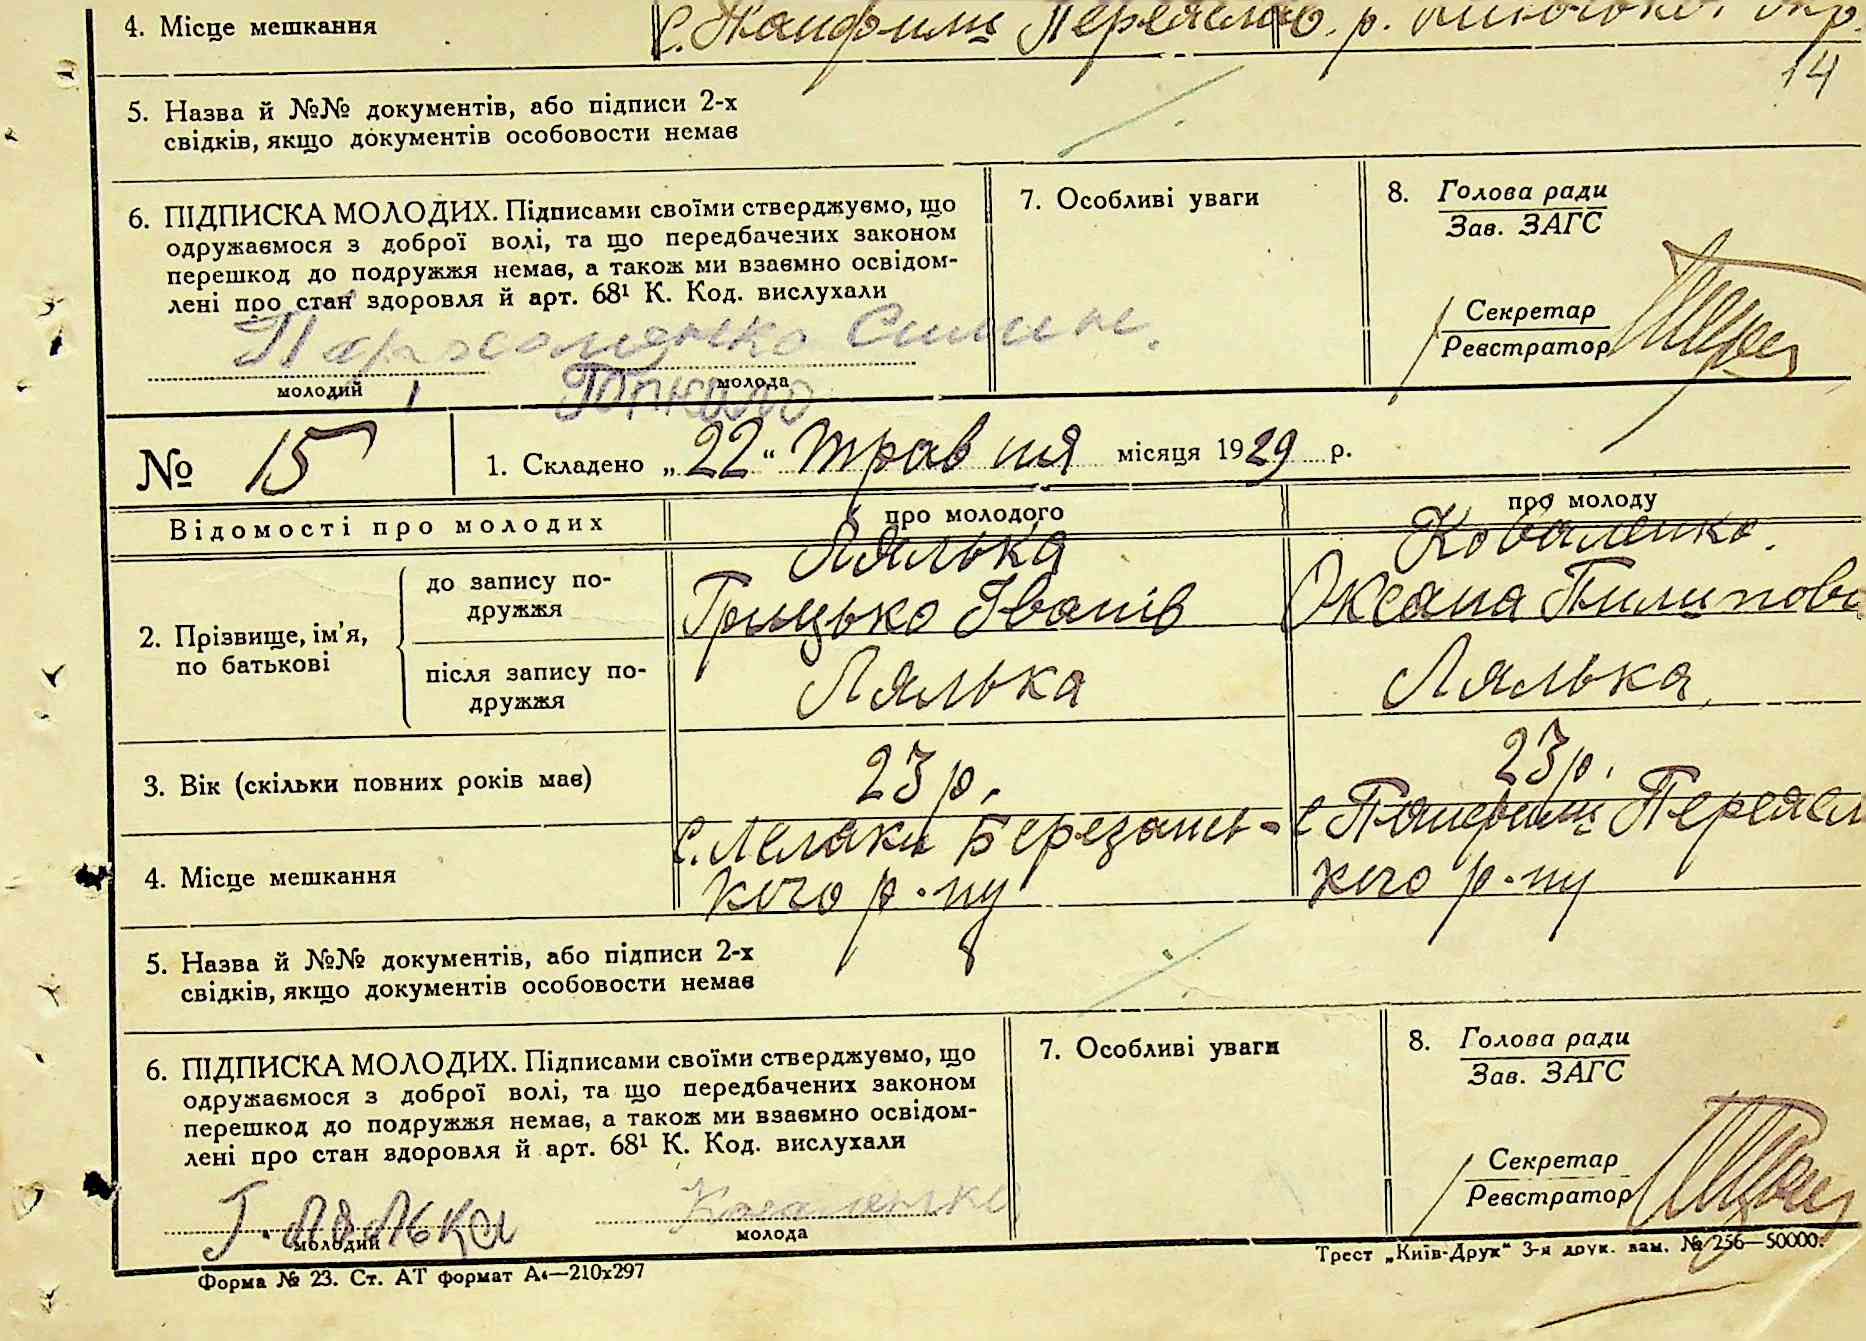 4. Місце мешкання с. Панфили Переяслав. р.
14
5. Назва й №№ документів, або підписи 2-х
свідків, якщо документів особовости немає
6. ПІДПИСКА МОЛОДИХ. Підписами своїми стверджуємо, що
одружаємося з доброї волі, та що передбачених законом
перешкод до подружжя немає, а також ми взаємно освідом-
лені про стан здоровля й арт. 68¹ К. Код. вислухали
молодий молода
7. Особливі уваги
8. Голова ради
Зав. ЗАГС
Секретар
Реєстратор
№ 15
1. Складено „22" травня місяця 1929 р.
Відомості про молодих
про молодого
про молоду
2. Прізвище, ім'я,
по батькові
до запису по-
дружжя
Лялька
Грицько Іванів
Коваленко.
Оксана Пилипов
після запису по-
дружжя
Лялька
Лялька
3. Вік (скільки повних років має)
23 р.
23 р.
4. Місце мешкання
с. Лелаки Березансь-
кого р-ну
с Панфили Переясл
кого р-ну
5. Назва й №№ документів, або підписи 2-х
свідків, якщо документів особовости немає
6. ПІДПИСКА МОЛОДИХ. Підписами своїми стверджуємо, що
одружаємося з доброї волі, та що передбачених законом
перешкод до подружжя немає, а також ми взаємно освідом-
лені про стан здоровля й арт. 68¹ К. Код. вислухали
Г. Лялька
молодий
Коваленко
молода
7. Особливі уваги
8. Голова ради
Зав. ЗАГС
Секретар
Реєстратор
Форма № 23. Ст. АТ формат А4—210х297
Трест „Київ-Друк" 3-я друк. зам. № 256—50000.